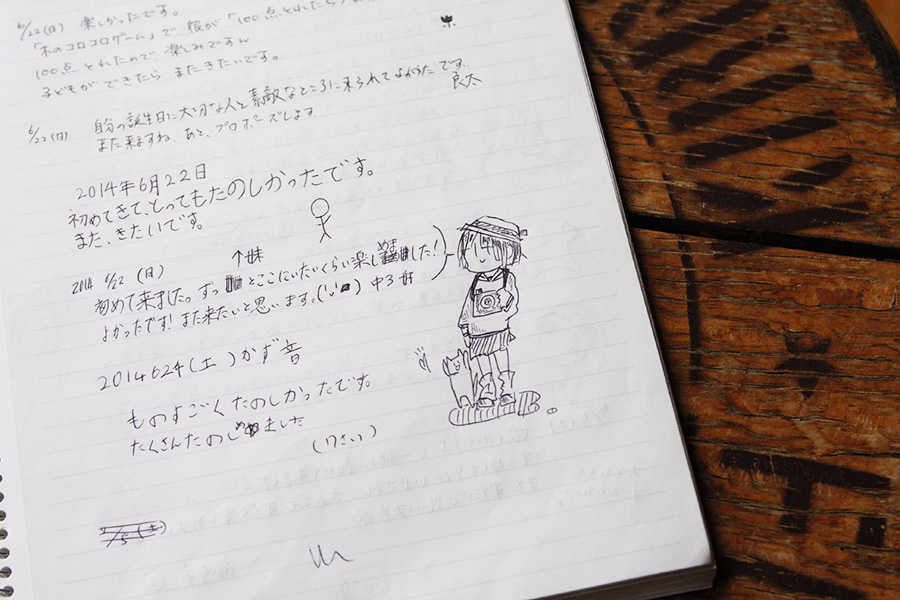 6/22(日) 楽しかったです。
「木のコロコロゲーム」で 娘が「100点 とれたら
100点 とれたので 楽しみですん
子どもが できたら またきたいです。
6/22(日) 自分の誕生日に大切な人と素敵なところに来られてよかったです。
また来ますね。あと、プロポーズします。
良太
2014年6月22日
初めてきて、とってもたのしかったです。
また、きたいです。
↑妹
2014 6/22 (日)
初めて来ました。ずっとここにいたいくらい楽しめました!
よかったです! また来たいと思います。 中3 姉
2014 6 24(土) かず音
ものすごくたのしかったです。
たくさんたのしめました
(17さい)
7/5(土)